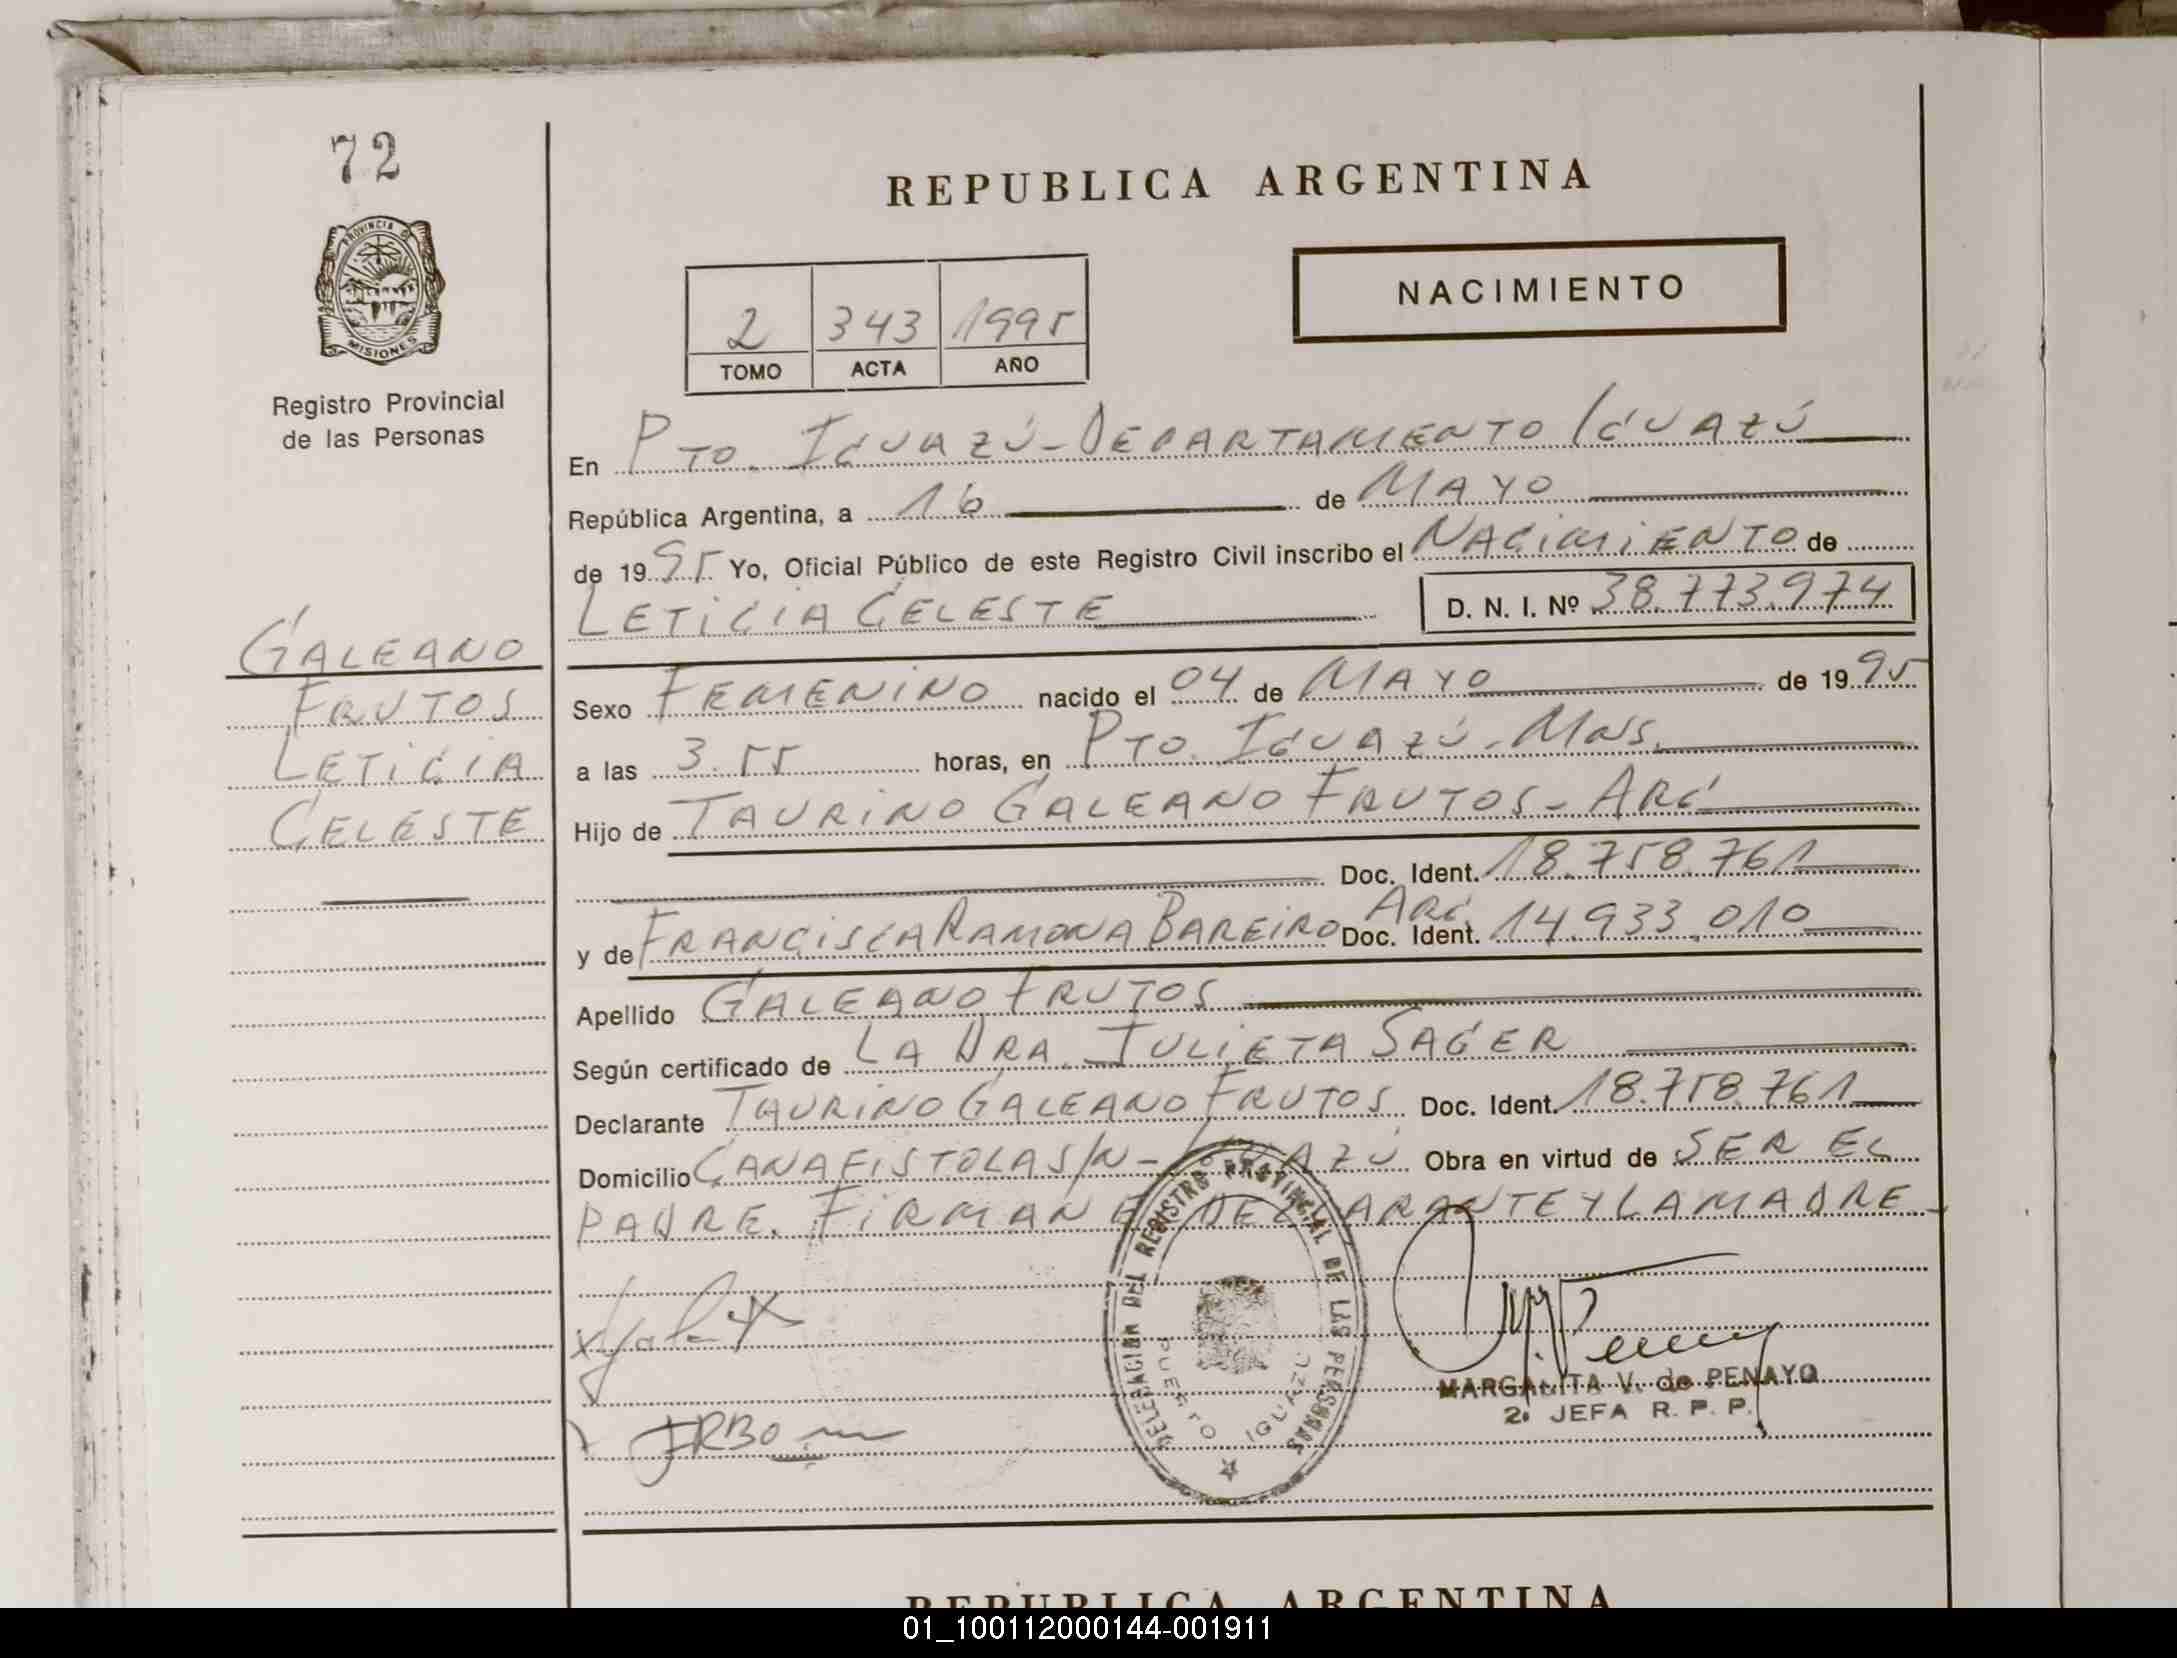 72
REPUBLICA ARGENTINA
PROVINCIA DE
MISIONES
NACIMIENTO
2 343 1995
TOMO ACTA AÑO
Registro Provincial
de las Personas
En PTO. IGUAZÚ - DEPARTAMENTO IGUAZÚ
República Argentina, a 16 de MAYO
de 1995 Yo, Oficial Público de este Registro Civil inscribo el NACIMIENTO de
LETICIA CELESTE D. N. I. Nº 38.773.974
GALEANO
FRUTOS
LETICIA
CELESTE
Sexo FEMENINO nacido el 04 de MAYO de 1995
a las 3.55 horas, en PTO. IGUAZÚ - Mns.
Hijo de TAURINO GALEANO FRUTOS - ARG
Doc. Ident. 18.758.761
y de FRANCISCA RAMONA BAREIRO ARG. Doc. Ident. 14.933.010
Apellido GALEANO FRUTOS
Según certificado de LA DRA. JULIETA SAGER
Declarante TAURINO GALEANO FRUTOS Doc. Ident. 18.758.761
Domicilio CANAFISTOLA S/N - IGUAZÚ Obra en virtud de SER EL
PADRE. FIRMAN EL DECLARANTE Y LA MADRE.
DELEGACION DEL REGISTRO PROVINCIAL DE LAS PERSONAS
PUERTO IGUAZU
MARGARITA V. de PENAYO
2a JEFA R. P. P.
REPUBLICA ARGENTINA
01_100112000144-001911